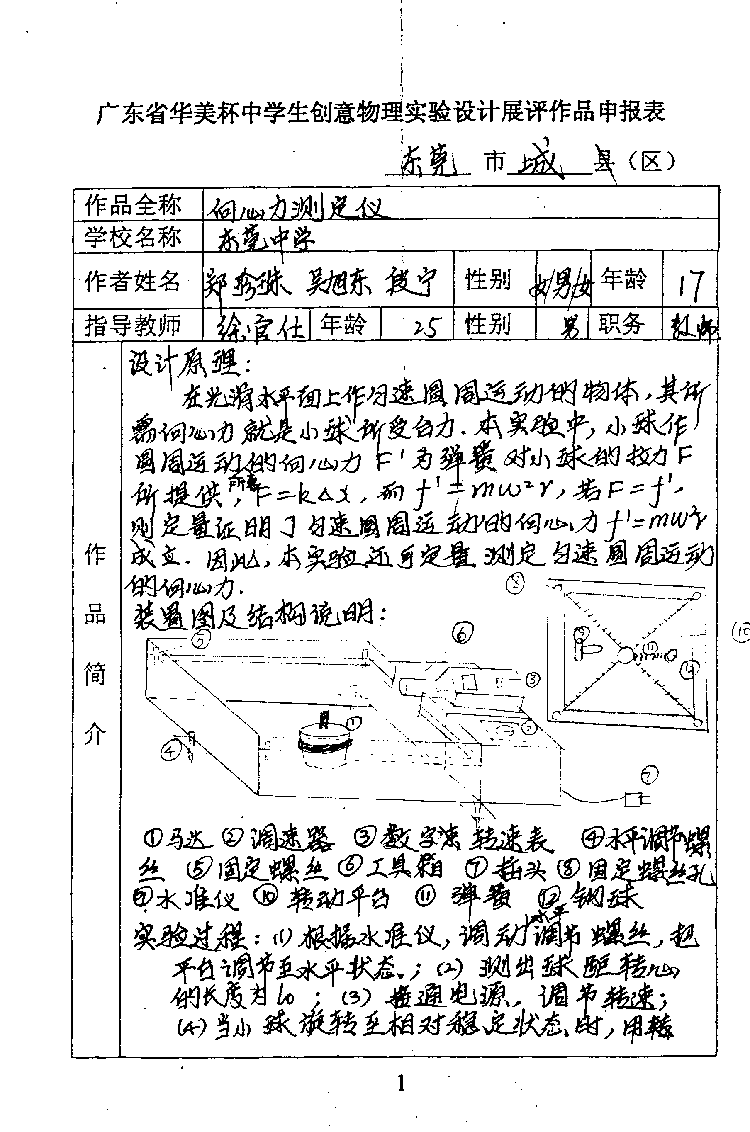 广东省华美杯中学生创意物理实验设计展评作品申报表
东莞 市 城 县（区）
作品全称 向心力测定仪
学校名称 东莞中学
作者姓名 郑珍珠 吴旭东 段宁 性别 女/男/女 年龄 17
指导教师 徐官仕 年龄 25 性别 男 职务 教师
作品简介
设计原理：
在光滑水平面上作匀速圆周运动的物体，其所
需向心力就是小球所受合力．本实验中，小球作
圆周运动的向心力F'为弹簧对小球的拉力F
所提供，所需F=k△x，而f'=mω²r，若F=f'，
则定量证明了匀速圆周运动的向心力f'=mω²r
成立．因此，本实验还可定量测定匀速圆周运动
的向心力．
装置图及结构说明：
⑤ ⑥ ③ ① ② ④ ⑦
⑧ ⑨ ⑪ ⑫ ⑩
①马达 ②调速器 ③数字速转速表 ④水平调节螺
丝 ⑤固定螺丝 ⑥工具箱 ⑦插头 ⑧固定螺丝孔
⑨水准仪 ⑩转动平台 ⑪弹簧 ⑫钢球
实验过程：(1)根据水准仪，调动水平调节螺丝，把
平台调节至水平状态．；(2)测出球距转心
的长度为l₀；(3)接通电源，调节转速；
(4)当小球旋转至相对稳定状态时，用转
1